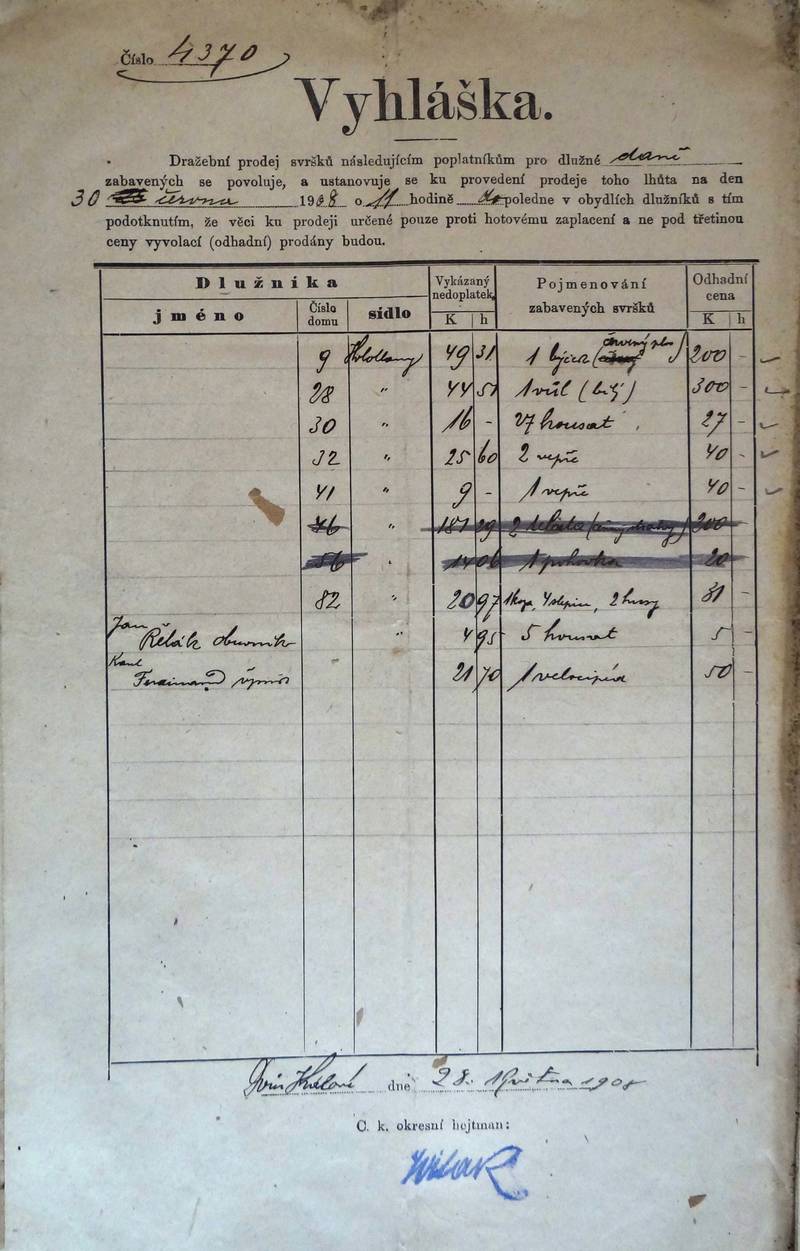 Číslo 4370
Vyhláška.
Dražební prodej svršků následujícím poplatníkům pro dlužné daně
zabavených se povoluje, a ustanovuje se ku provedení prodeje toho lhůta na den
30 června 1908 o 11 hodině poledne v obydlích dlužníků s tím
podotknutím, že věci ku prodeji určené pouze proti hotovému zaplacení a ne pod třetinou
ceny vyvolací (odhadní) prodány budou.
Dlužníka Vykázaný nedoplatek Pojmenování zabavených svršků Odhadní cena
jméno Číslo domu sídlo K h K h
9 49 31 1 200 -
28 " 44 51 1 vůl (bílý) 300 -
30 " 16 - 27 housat 27 -
32 " 25 60 2 vepře 40 -
41 " 9 - 1 vepře 40 -
46 " 181 29 2 200
56 14 06 1 pohovka 20
82 " 20 97 1 koza, 4 slepice, 2 husy 31 -
Jan
Řelák " 4 95 5 housat 5 -
Karel
Ferdinand 21 70 1 velociped 50 -
dně 28. května 1908
C. k. okresní hejtman: